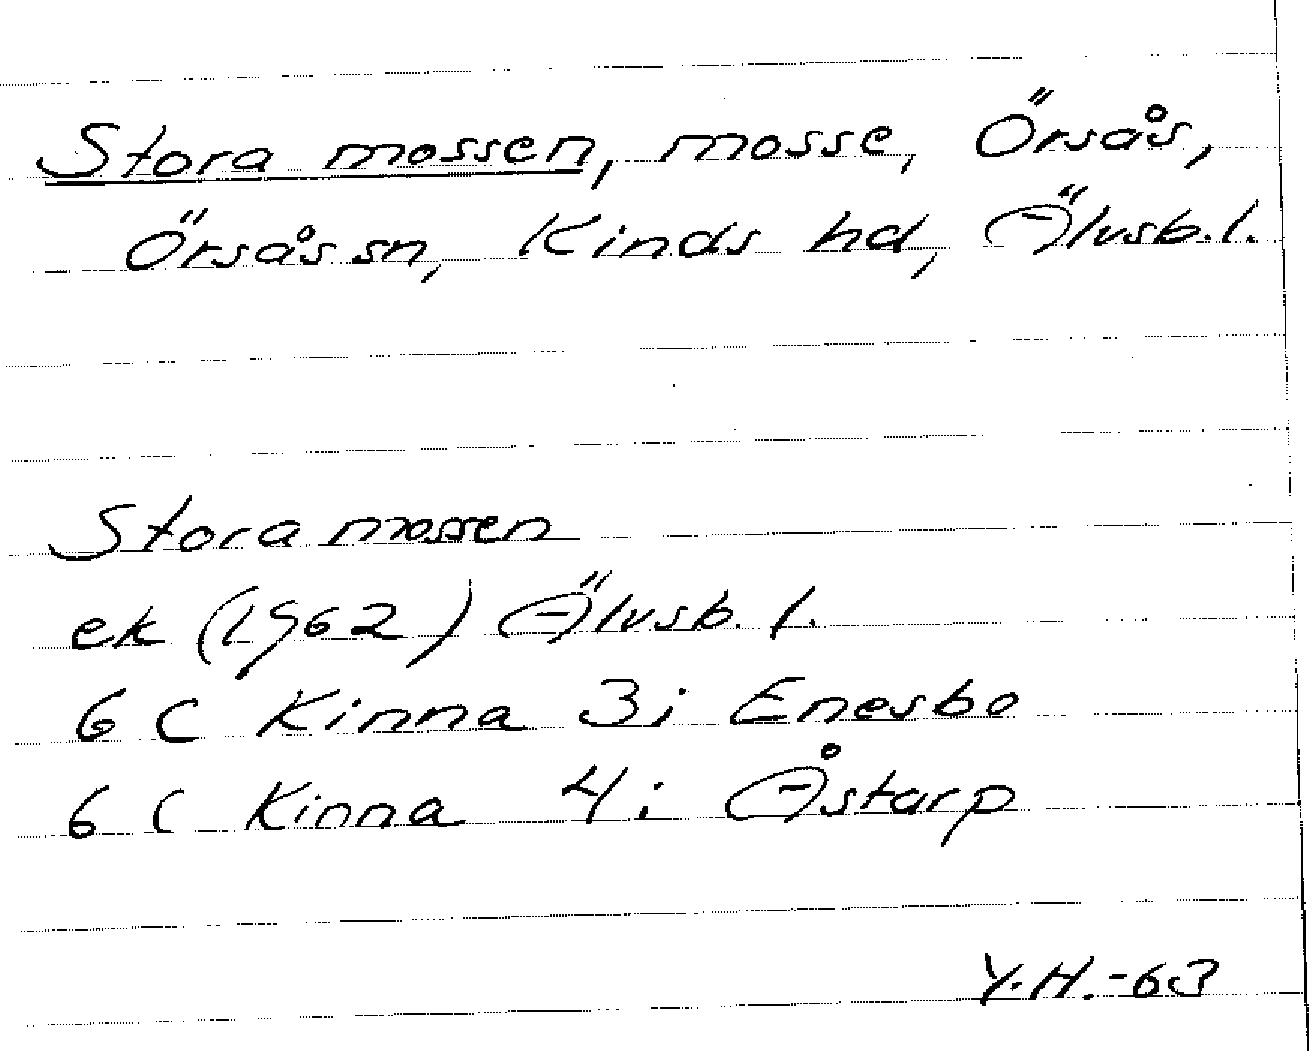 Stora mossen, mosse, Örsås,
Örsås sn, Kinds hd, Älvsb. l.
Stora mossen
ek (1962) Älvsb. l.
6 C Kinna 3i Enesbo
6 C Kinna 4i Åstarp
Y.H.-63